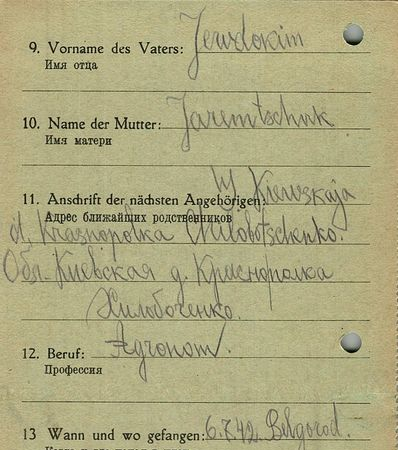 9. Vorname des Vaters: Jewdokim
Имя отца
10. Name der Mutter: Jaremtschuk
Имя матери
11. Anschrift der nächsten Angehörigen: Kiewskaja
Адрес ближайших родственников
d, Krasnopolka Chilobotschenko.
Обл. Киевская д. Краснополка
Хилобоченко.
12. Beruf: Agronom.
Профессия
13 Wann und wo gefangen: 6.7.42. Belgorod.